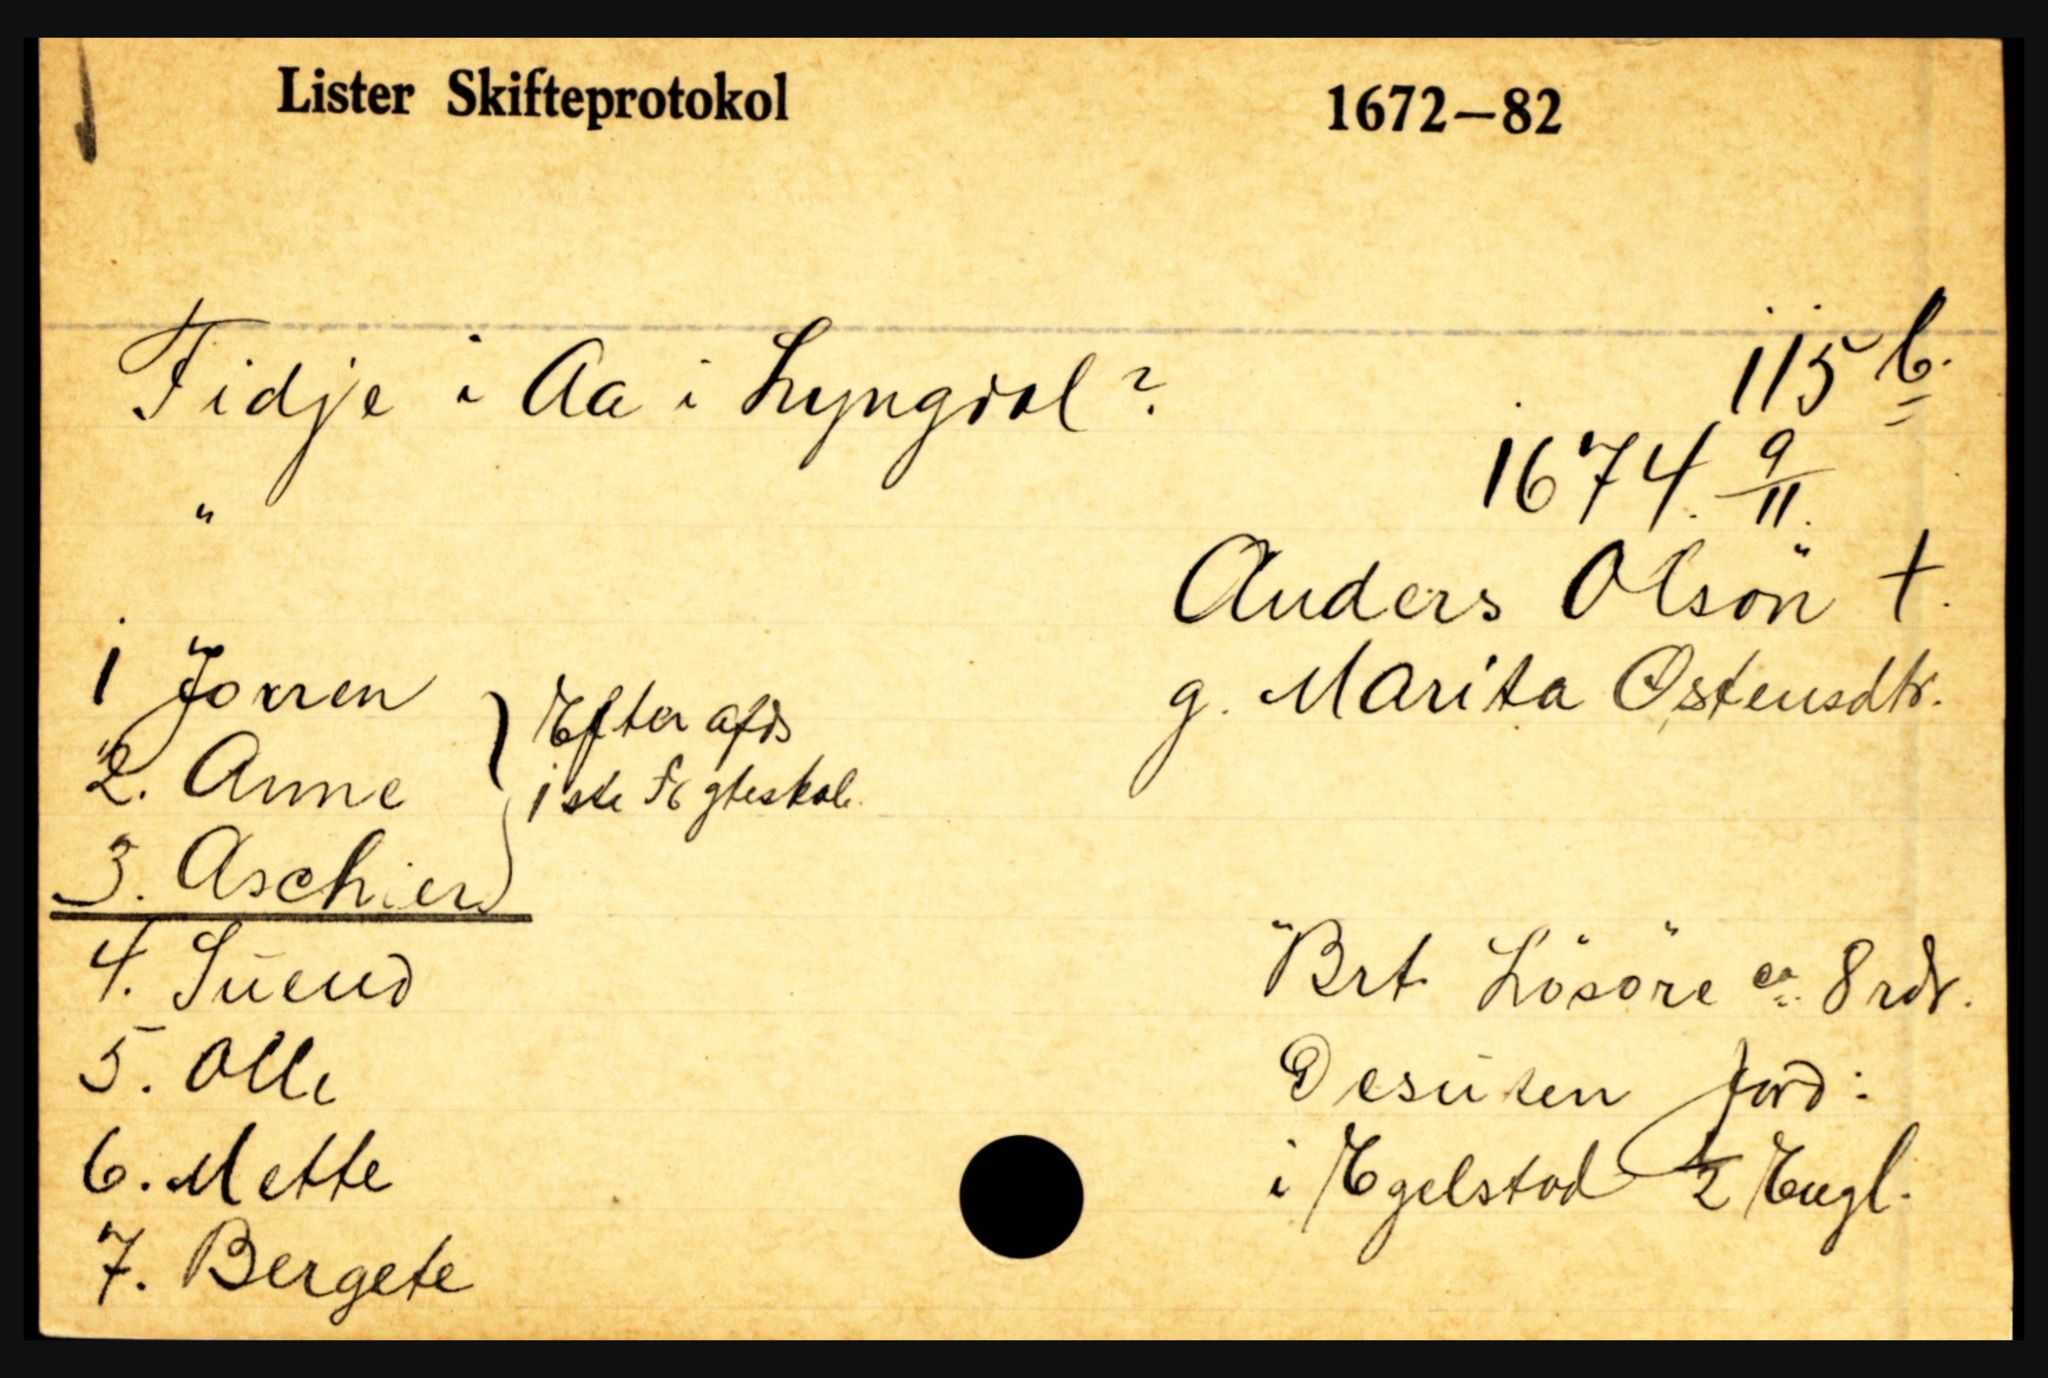 Lister Skifteprotokol 1672—82
Fidje i Aa i Lyngdal? 115 b.
1674. 9/11.
"
Anders Olsön †.
1 Jorren
g. Marita Østensdtr.
Efter afds
2. Anne
1ste Ægteskab.
3. Aschier
4. Suend
Brt Lösöre ca. 8 rdr.
5. Olle
Desuten Jord:
6. Mette
i Egelstad 1/2 Engl.
7. Bergete